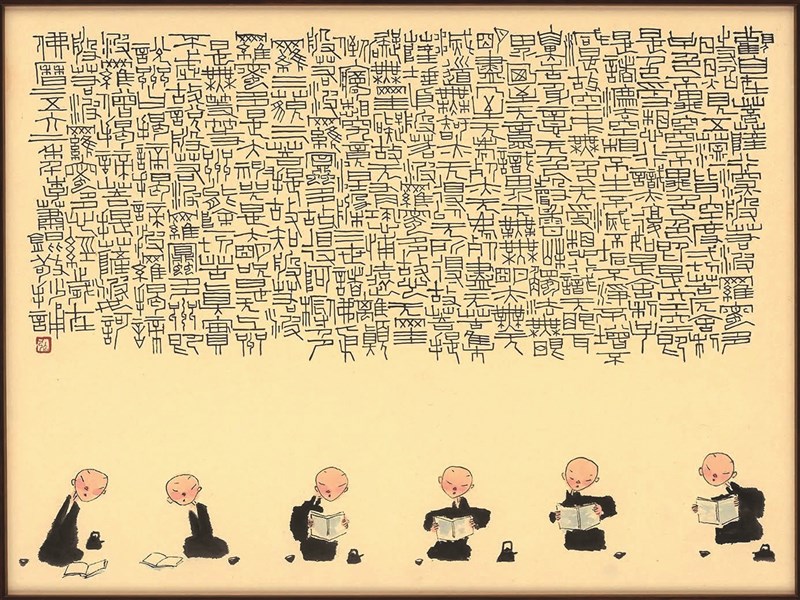 觀自在菩薩行深般若波羅蜜多
時照見五蘊皆空度一切苦厄舍利
子色不異空空不異色色即是空空即
是色受想行識亦復如是舍利子
是諸法空相不生不滅不垢不淨不增不
減是故空中無色無受想行識無眼耳
鼻舌身意無色聲香味觸法無眼
界乃至無意識界無無明亦無無
明盡乃至無老死亦無老死盡無苦集
滅道無智亦無得以無所得故菩提
薩埵依般若波羅蜜多故心無罣
礙無罣礙故無有恐怖遠離顛
倒夢想究竟涅槃三世諸佛依
般若波羅蜜多故得阿耨多
羅三藐三菩提故知般若波
羅蜜多是大神咒是大明咒是無上咒
是無等等咒能除一切苦真實
不虛故說般若波羅蜜多咒即
說咒曰揭諦揭諦波羅揭諦
波羅僧揭諦菩提薩婆訶
般若波羅蜜多心經歲在
佛曆二五六一年李蕭錕敬抄